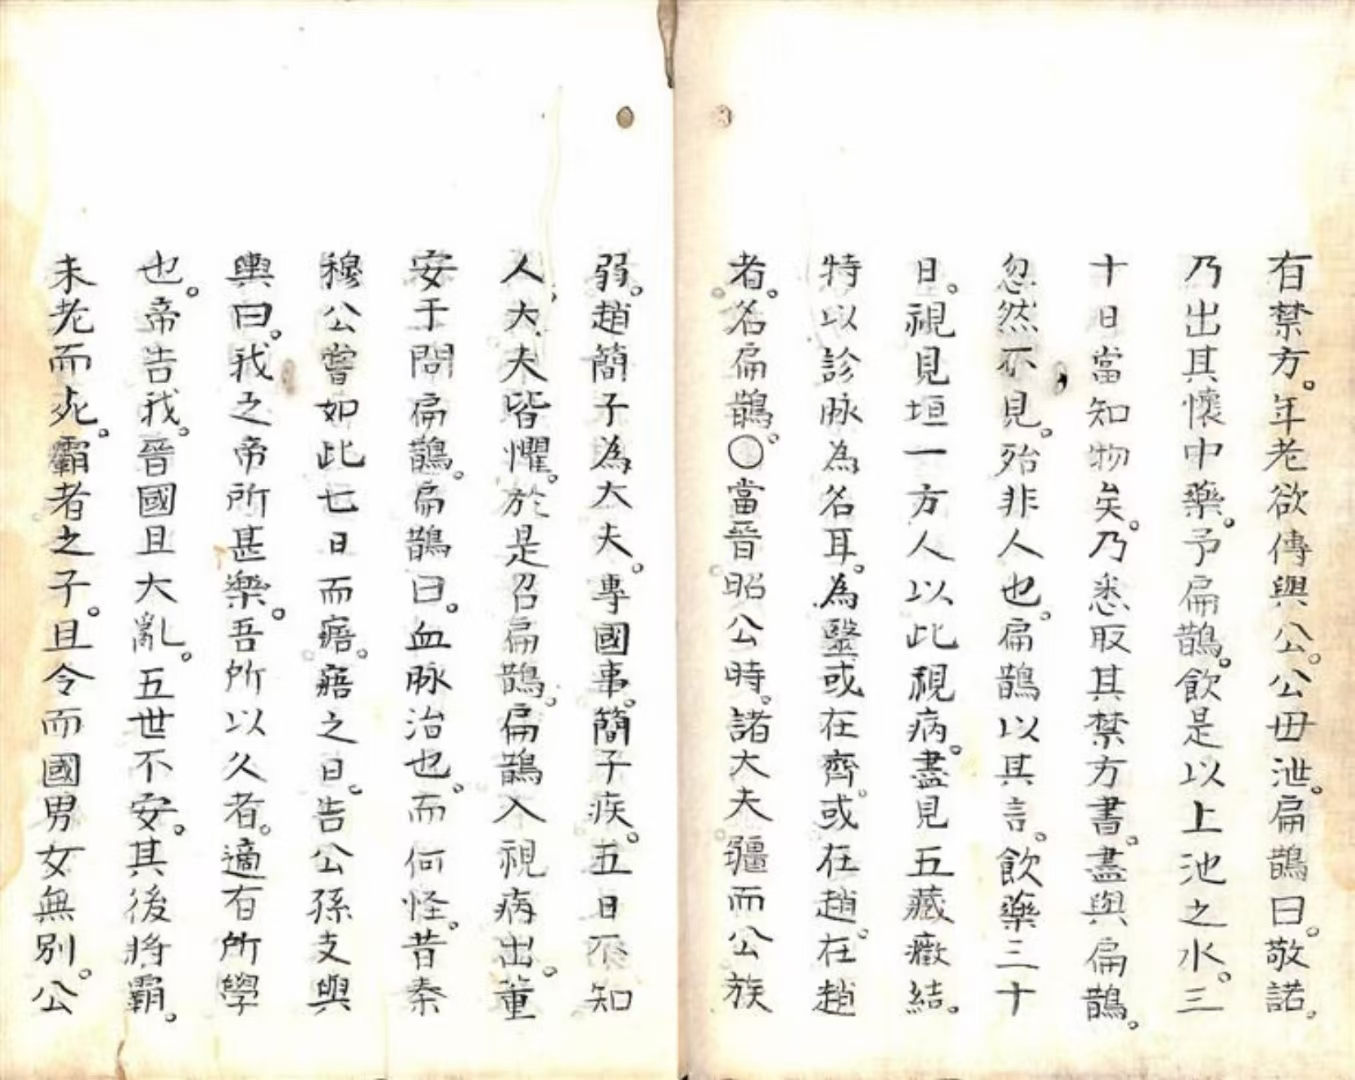 有禁方。年老欲傳與公。公毋泄。扁鵲曰。敬諾。
乃出其懷中藥。予扁鵲。飲是以上池之水。三
十日當知物矣。乃悉取其禁方書。盡與扁鵲。
忽然不見。殆非人也。扁鵲以其言。飲藥三十
日。視見垣一方人以此視病。盡見五藏癥結。
特以診脉為名耳。為醫或在齊或在趙。在趙
者。名扁鵲。〇當晉昭公時。諸大夫彊而公族
弱。趙簡子為大夫。專國事。簡子疾。五日不知
人。大夫皆懼。於是召扁鵲。扁鵲入視病出。董
安于問扁鵲。扁鵲曰。血脉治也。而何怪。昔秦
穆公嘗如此七日而寤。寤之日。告公孫支與
輿曰。我之帝所甚樂。吾所以久者。適有所學
也。帝告我。晉國且大亂。五世不安。其後將霸。
未老而死。霸者之子。且令而國男女無別。公